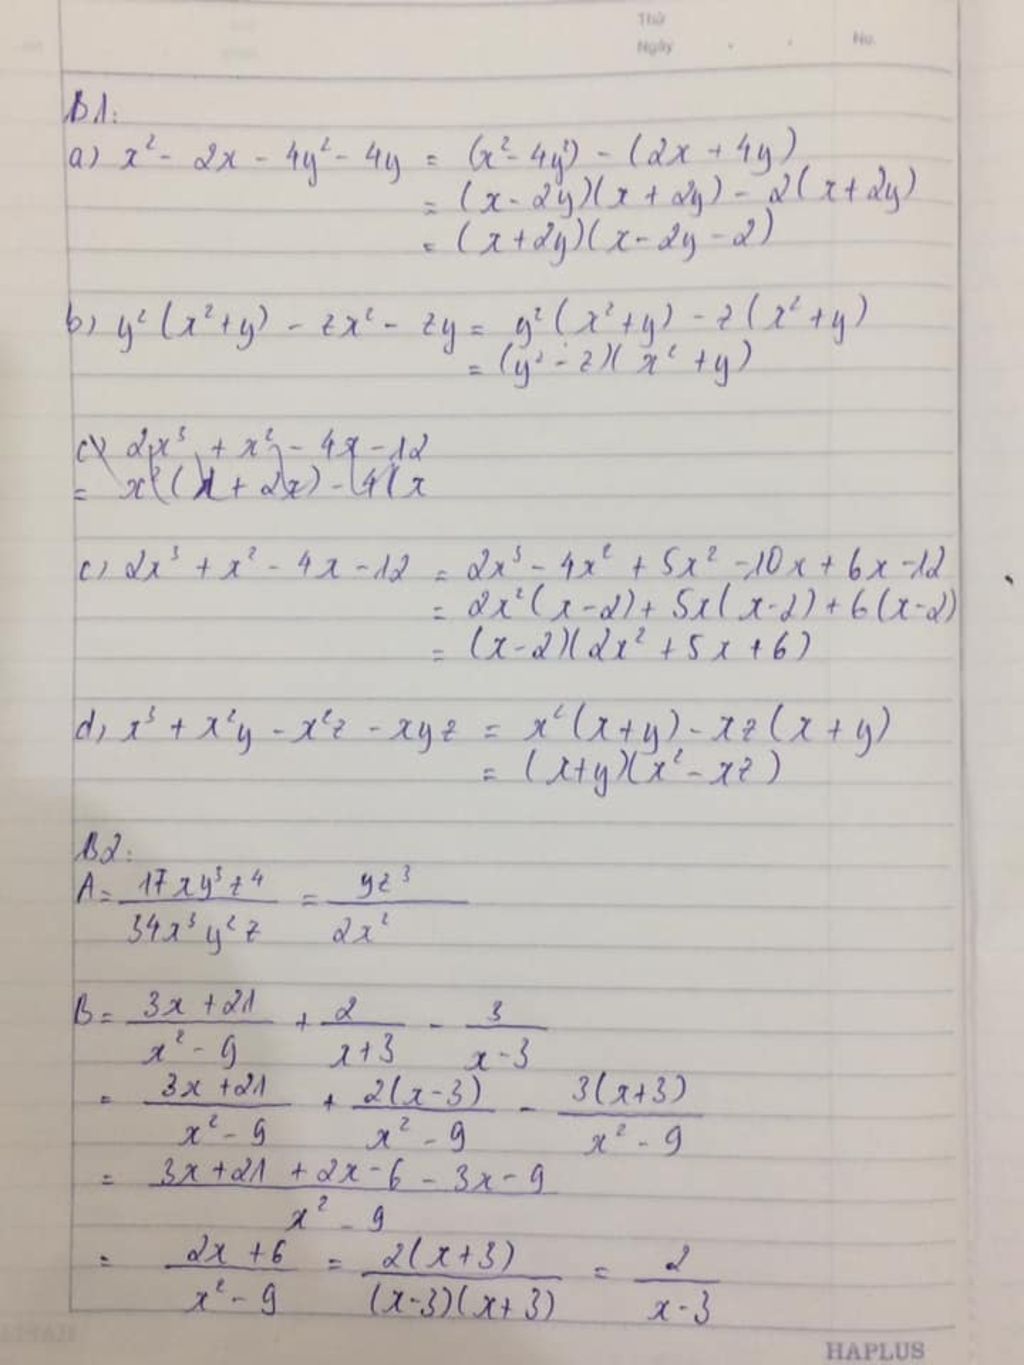 Thứ
Ngày . . No.
B1:
a) x² - 2x - 4y² - 4y = (x² - 4y²) - (2x + 4y)
= (x - 2y)(x + 2y) - 2(x + 2y)
= (x + 2y)(x - 2y - 2)
b) y²(x² + y) - zx² - zy = y²(x² + y) - z(x² + y)
= (y² - z)(x² + y)
c) 2x³ + x² - 4x - 12
= x²(1 + 2x) - 4(x
c) 2x³ + x² - 4x - 12 = 2x³ - 4x² + 5x² - 10x + 6x - 12
= 2x²(x - 2) + 5x(x - 2) + 6(x - 2)
= (x - 2)(2x² + 5x + 6)
d) x³ + x²y - x²z - xyz = x²(x + y) - xz(x + y)
= (x + y)(x² - xz)
B2:
A = 17xy³z⁴ / 34x³y²z = yz³ / 2x²
B = (3x + 21)/(x² - 9) + 2/(x + 3) - 3/(x - 3)
= (3x + 21)/(x² - 9) + 2(x - 3)/(x² - 9) - 3(x + 3)/(x² - 9)
= (3x + 21 + 2x - 6 - 3x - 9)/(x² - 9)
= (2x + 6)/(x² - 9) = 2(x + 3)/((x - 3)(x + 3)) = 2/(x - 3)
HAPLUS